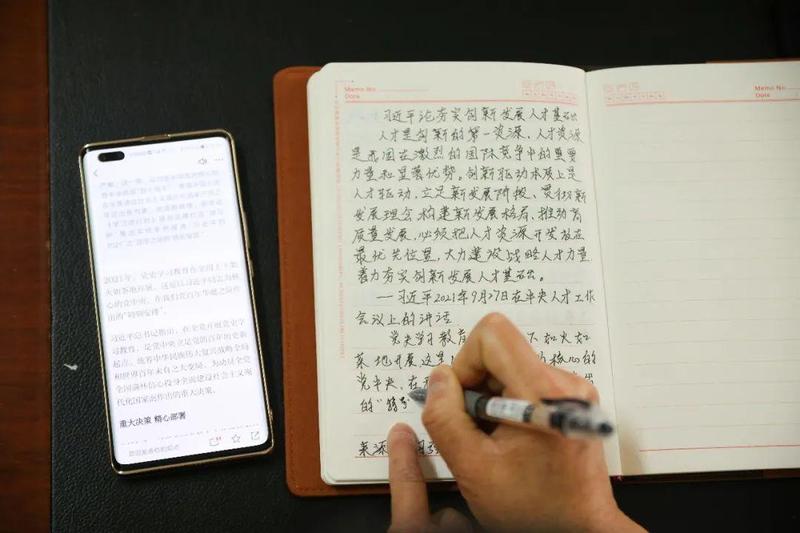 2021年，党史学习教育在全国上下如
火如荼地开展。这是以习近平同志为核
心的党中央，在我们党百年华诞之际作
出的“特别安排”。
习近平总书记指出，在全党开展党史学
习教育，是党中央立足党的百年历史新
起点、统筹中华民族伟大复兴战略全局
和世界百年未有之大变局、为动员全党
全国满怀信心投身全面建设社会主义现
代化国家而作出的重大决策。
重大决策 精心部署
欢迎发表你的观点
Memo No.
Date
习近平论夯实创新发展人才基础
人才是创新的第一资源，人才资源
是我国在激烈的国际竞争中的重要
力量和显著优势。创新驱动本质上是
人才驱动，立足新发展阶段、贯彻新
发展理念、构建新发展格局、推动高
质量发展，必须把人才资源开发放在
最优先位置，大力建设战略人才力量
着力夯实创新发展人才基础。
——习近平2021年9月27日在中央人才工作
会议上的讲话
党史学习教育 下如火如
荼地开展这是 核心的
党中央，在
的“特别
来源
Memo No.
Date